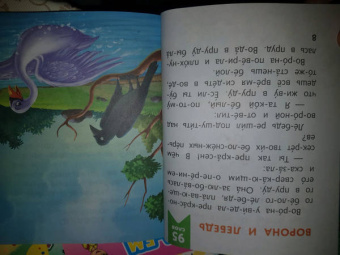 95
СЛОВ
ВОРОНА И ЛЕБЕДЬ
Во-ро́-на у-ви́-де-ла пре-кра́с-но-
го бе́-ло-го ле́-бе-дя, пла́-ва-ще-
го в пру-ду́. Она́ за-лю-бо-ва́-лась
его́ свер-ка́-ю-щим о-пе-ре́-ни-ем
и ска-за́-ла:
— Ты так пре-кра́-сен! В чём
сек-ре́т твои́х бе-ло-сне́ж-ных пе́рь-
ев?
Ле́-бедь ре-ши́л под-шу-ти́ть над
во-ро́-ной и от-ве́-тил:
— Я та-ко́й бе́-лый, по-то-му́ что
жи-ву́ в пру-ду́. Е́с-ли ты бу́-
дешь всё вре́-мя си-де́ть в во-де́,
то́-же ста́-нешь бе́-лой.
Во-ро́-на по-ве́-ри-ла и плюх-ну́-
лась в пруд. Во-да́ в пру-ду́ бы-ла́
8